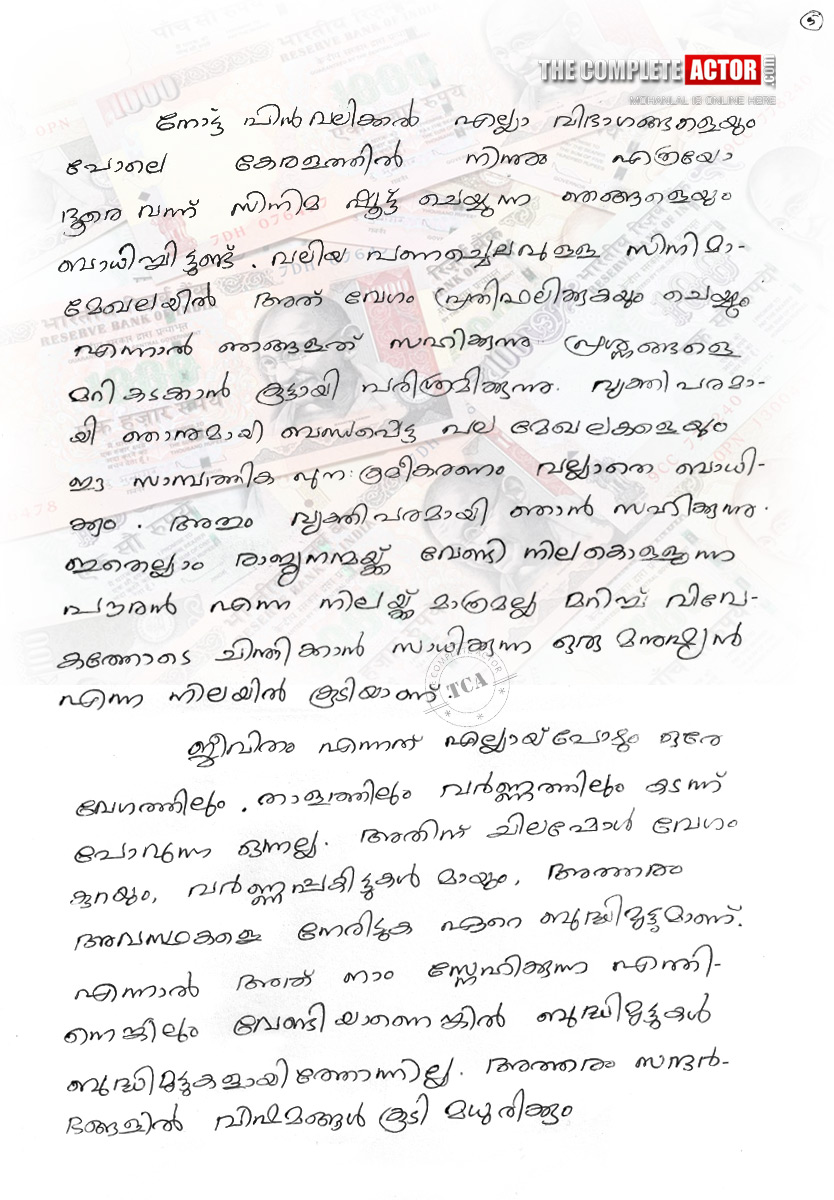 5
THE COMPLETE ACTOR.com
MOHANLAL IS ONLINE HERE
നോട്ട് പിൻവലിക്കൽ എല്ലാ വിഭാഗങ്ങളെയും
പോലെ കേരളത്തിൽ നിന്നും എത്രയോ
ദൂരെ വന്ന് സിനിമ ഷൂട്ട് ചെയ്യുന്ന ഞങ്ങളെയും
ബാധിച്ചിട്ടുണ്ട്. വലിയ പണച്ചെലവുള്ള സിനിമാ-
മേഖലയിൽ അത് വേഗം പ്രതിഫലിക്കുകയും ചെയ്യും
എന്നാൽ ഞങ്ങളത് സഹിക്കുന്നു പ്രശ്നങ്ങളെ
മറികടക്കാൻ കൂട്ടായി പരിശ്രമിക്കുന്നു. വ്യക്തിപരമാ-
യി ഞാനുമായി ബന്ധപ്പെട്ട പല മേഖലകളെയും
ഈ സാമ്പത്തിക പുന:ക്രമീകരണം വല്ലാതെ ബാധി-
ക്കും. അതും വ്യക്തിപരമായി ഞാൻ സഹിക്കുന്നു.
ഇതെല്ലാം രാജ്യനന്മയ്ക്ക് വേണ്ടി നിലകൊള്ളുന്ന
പൗരൻ എന്ന നിലയ്ക്ക് മാത്രമല്ല മറിച്ച് വിവേ-
കത്തോടെ ചിന്തിക്കാൻ സാധിക്കുന്ന ഒരു മനുഷ്യൻ
എന്ന നിലയിൽ കൂടിയാണ്.
THE COMPLETE ACTOR
TCA
ജീവിതം എന്നത് എല്ലായ്പോഴും ഒരേ
വേഗത്തിലും, താളത്തിലും വർണ്ണത്തിലും കടന്ന്
പോവുന്ന ഒന്നല്ല. അതിന് ചിലപ്പോൾ വേഗം
കുറയും, വർണ്ണപ്പകിട്ടുകൾ മായും, അത്തരം
അവസ്ഥകളെ നേരിടുക ഏറെ ബുദ്ധിമുട്ടുമാണ്.
എന്നാൽ അത് നാം സ്നേഹിക്കുന്ന എന്തി-
നെങ്കിലും വേണ്ടിയാണെങ്കിൽ ബുദ്ധിമുട്ടുകൾ
ബുദ്ധിമുട്ടുകളായിത്തോന്നില്ല. അത്തരം സന്ദർ-
ഭങ്ങളിൽ വിഷമങ്ങൾ കൂടി മധുരിക്കും